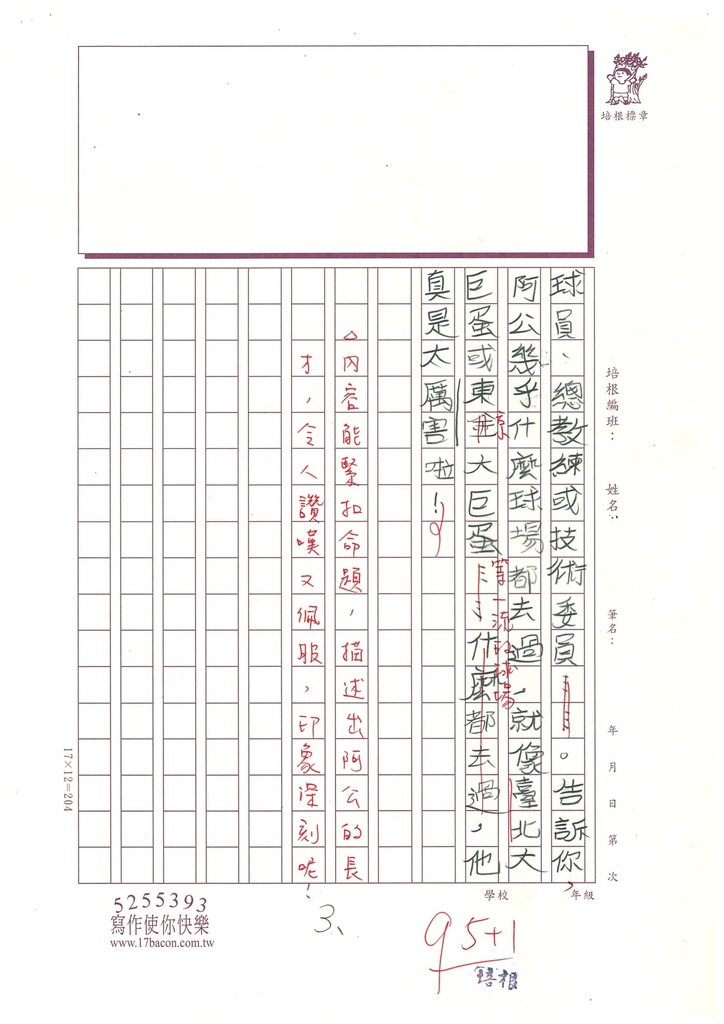 培根標章
培根編班：
姓名：
筆名：
年 月 日 第 次
球員、總教練或技術委員……。告訴你，
阿公幾乎什麼球場都去過，就像臺北大
巨蛋或東京大巨蛋……什麼都去過，他
等一流的球場
真是太厲害啦！
△內容能緊扣命題，描述出阿公的長
才，令人讚嘆又佩服，印象深刻呢！
17×12=204
學校
年級
5255393
寫作使你快樂
www.17bacon.com.tw
3、
95+1
培根